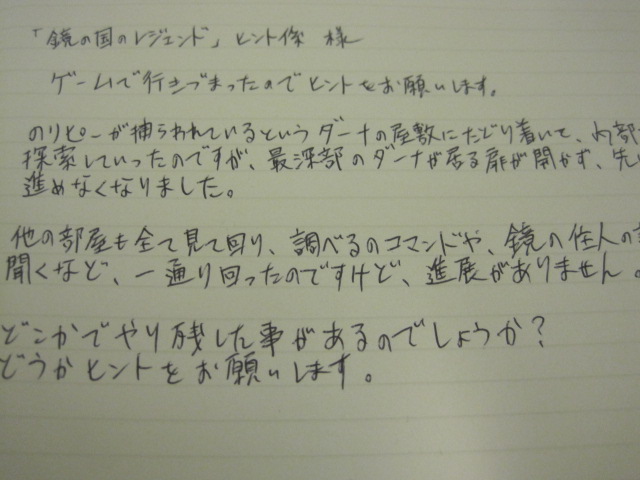 「鏡の国のレジェンド」ヒント係 様
ゲームで行きづまったのでヒントをお願いします。
のりピーが捕らわれているというダーナの屋敷にたどり着いて、内部
探索していったのですが、最深部のダーナが居る扉が開かず、先
進めなくなりました。
他の部屋も全て見て回り、調べるのコマンドや、鏡の住人の
聞くなど、一通り回ったのですけど、進展がありません。
どこかでやり残した事があるのでしょうか？
どうかヒントをお願いします。